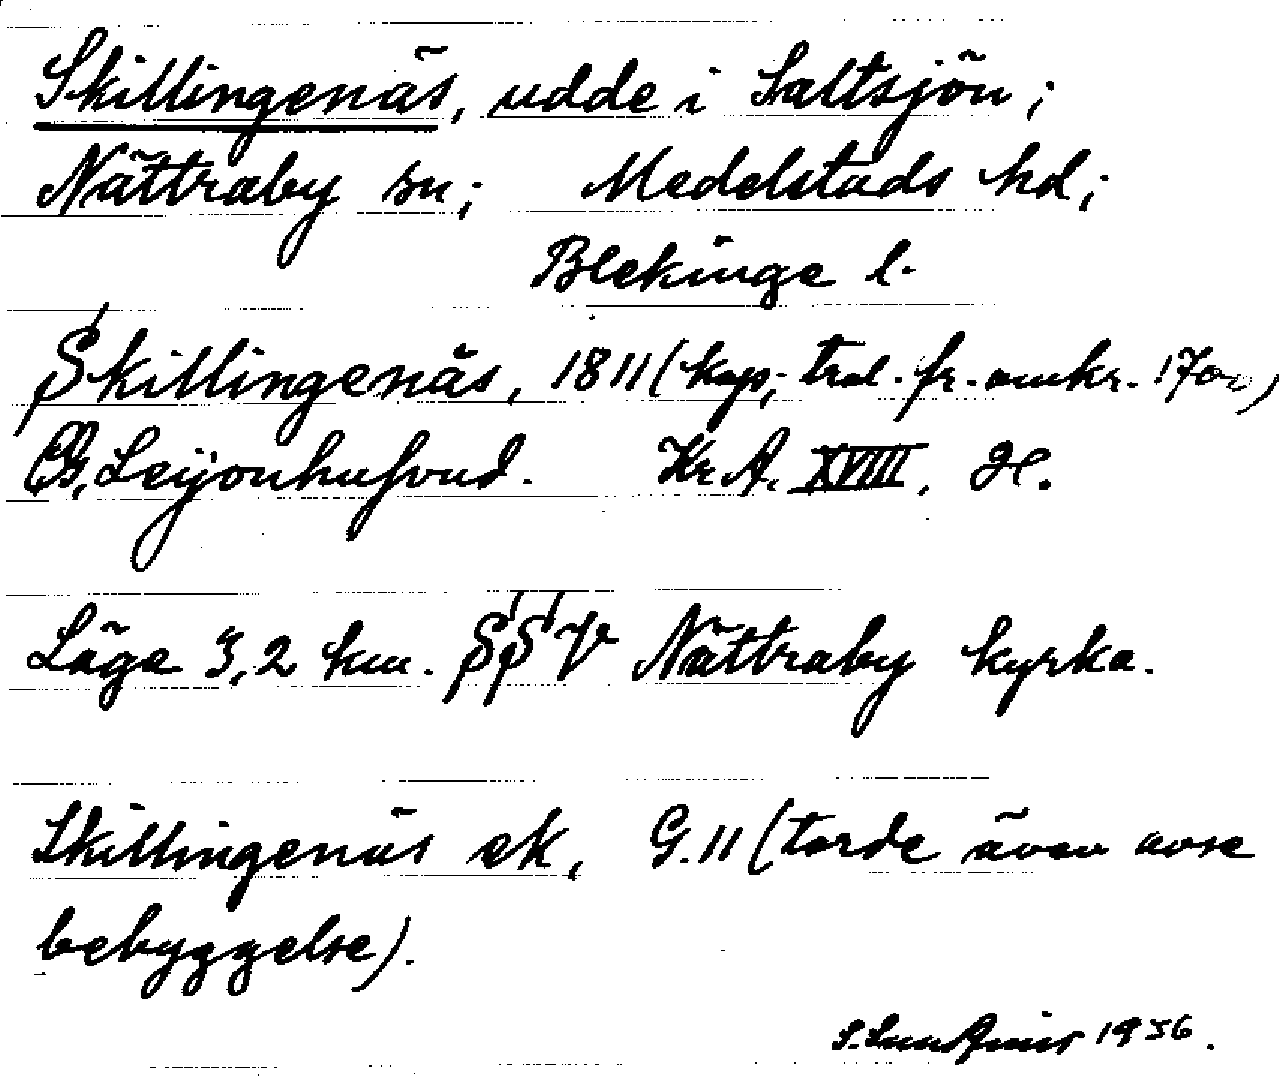 Skillingenäs, udde i Saltsjön;
Nättraby sn; Medelstads hd;
Blekinge l.
Skillingenäs, 1811 (kop; trol. fr. omkr. 1700)
B. Leijonhufvud. Kr A. XVIII. H.
Läge 3,2 km. SSV Nättraby kyrka.
Skillingenäs ek, G. 11 (torde även avse
bebyggelse).
1936.